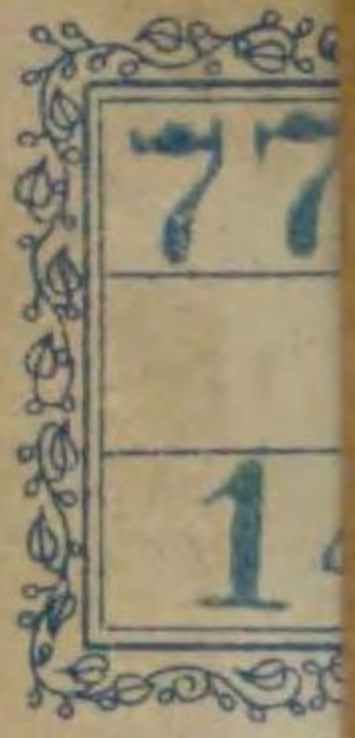 77
1